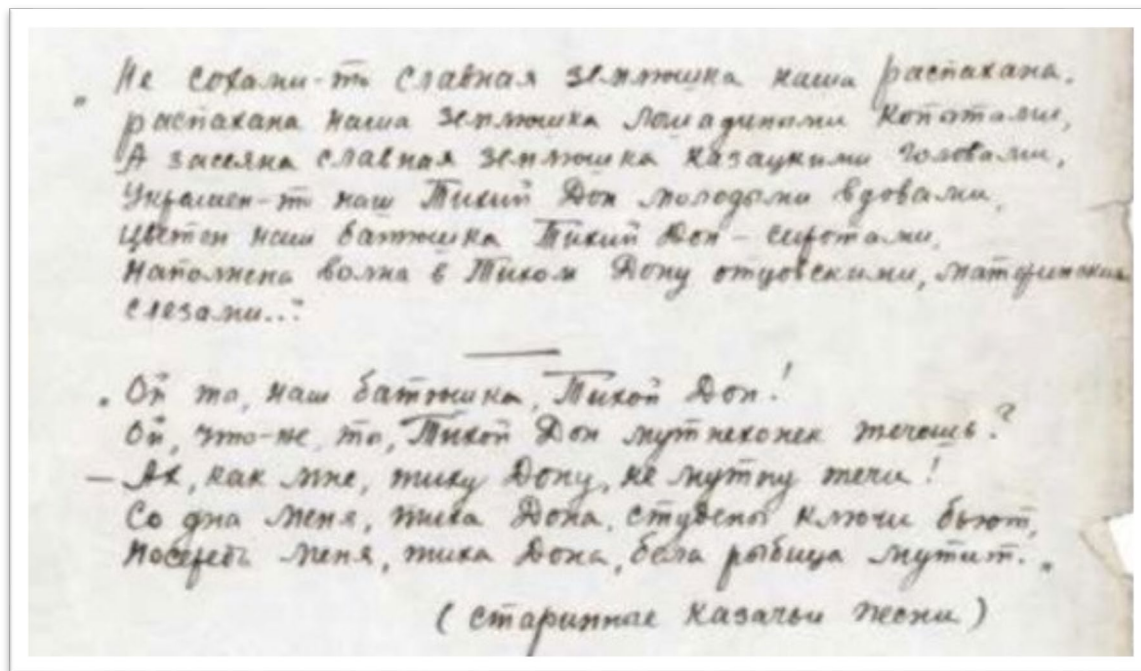 „Не сохами-то славная землюшка наша распахана.
распахана наша землюшка лошадиными копытами,
А засеяна славная землюшка казацкими головами,
Украшен-то наш Тихий Дон молодыми вдовами,
Цветен наш батюшка Тихий Дон – сиротами,
Наполнена волна в Тихом Дону отцовскими, материнскими
слезами..."
„Ой ты, наш батюшка, Тихой Дон!
Ой, что-же, ты, Тихой Дон мутнехонек течешь?
– Ах, как мне, тиху Дону, не мутну течи!
Со дна меня, тиха Дона, студены ключи бьют,
Посередь меня, тиха Дона, бела рыбица мутит."
(Старинные казачьи песни)